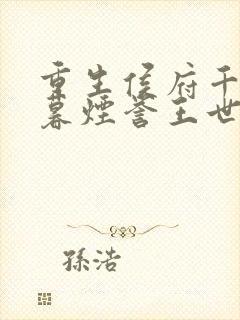 重生侯府千
暮煙誉王世
孫浩